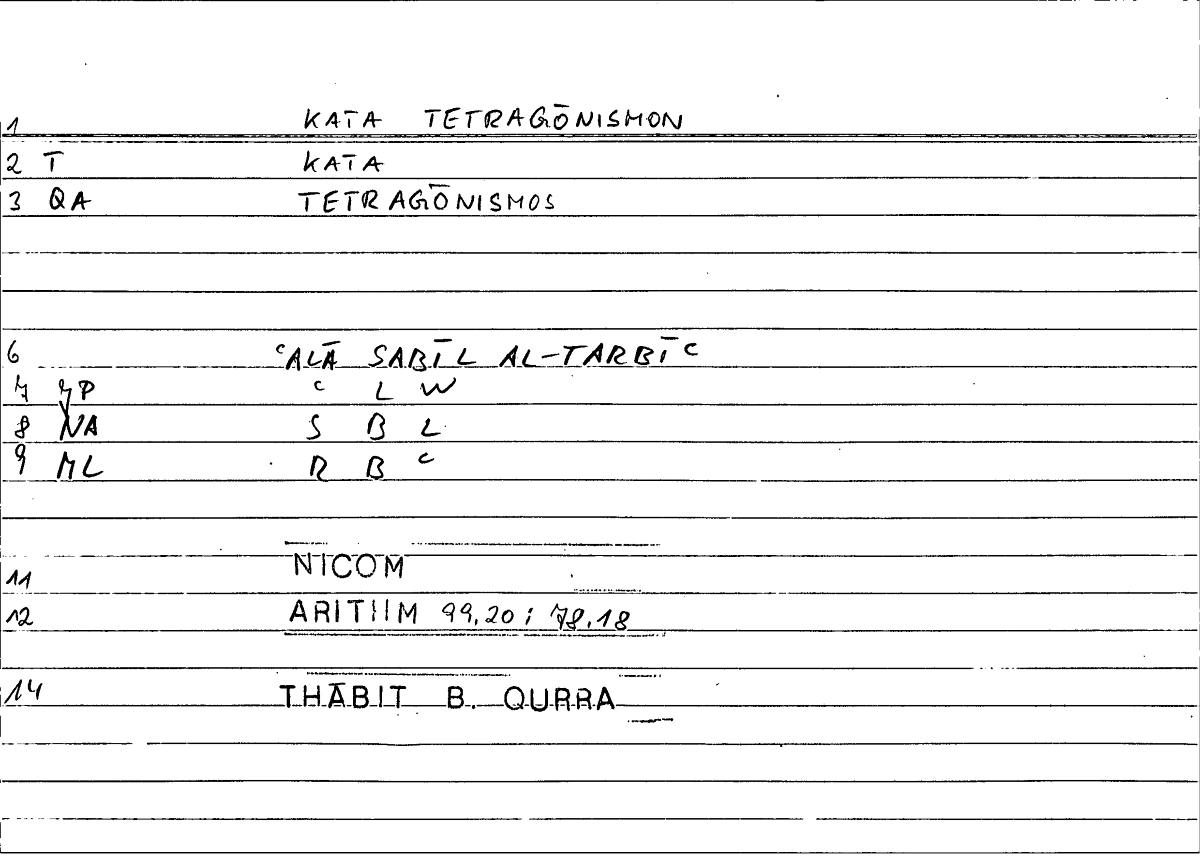 1 KATA TETRAGŌNISMON
2 T KATA
3 QA TETRAGŌNISMOS
6 ʿALĀ SABĪL AL-TARBĪʿ
7 7P ʿ L W
8 NA S B L
9 ML R B ʿ
11 NICOM
12 ARITIIM 99,20; 78,18
14 THĀBIT B. QURRA